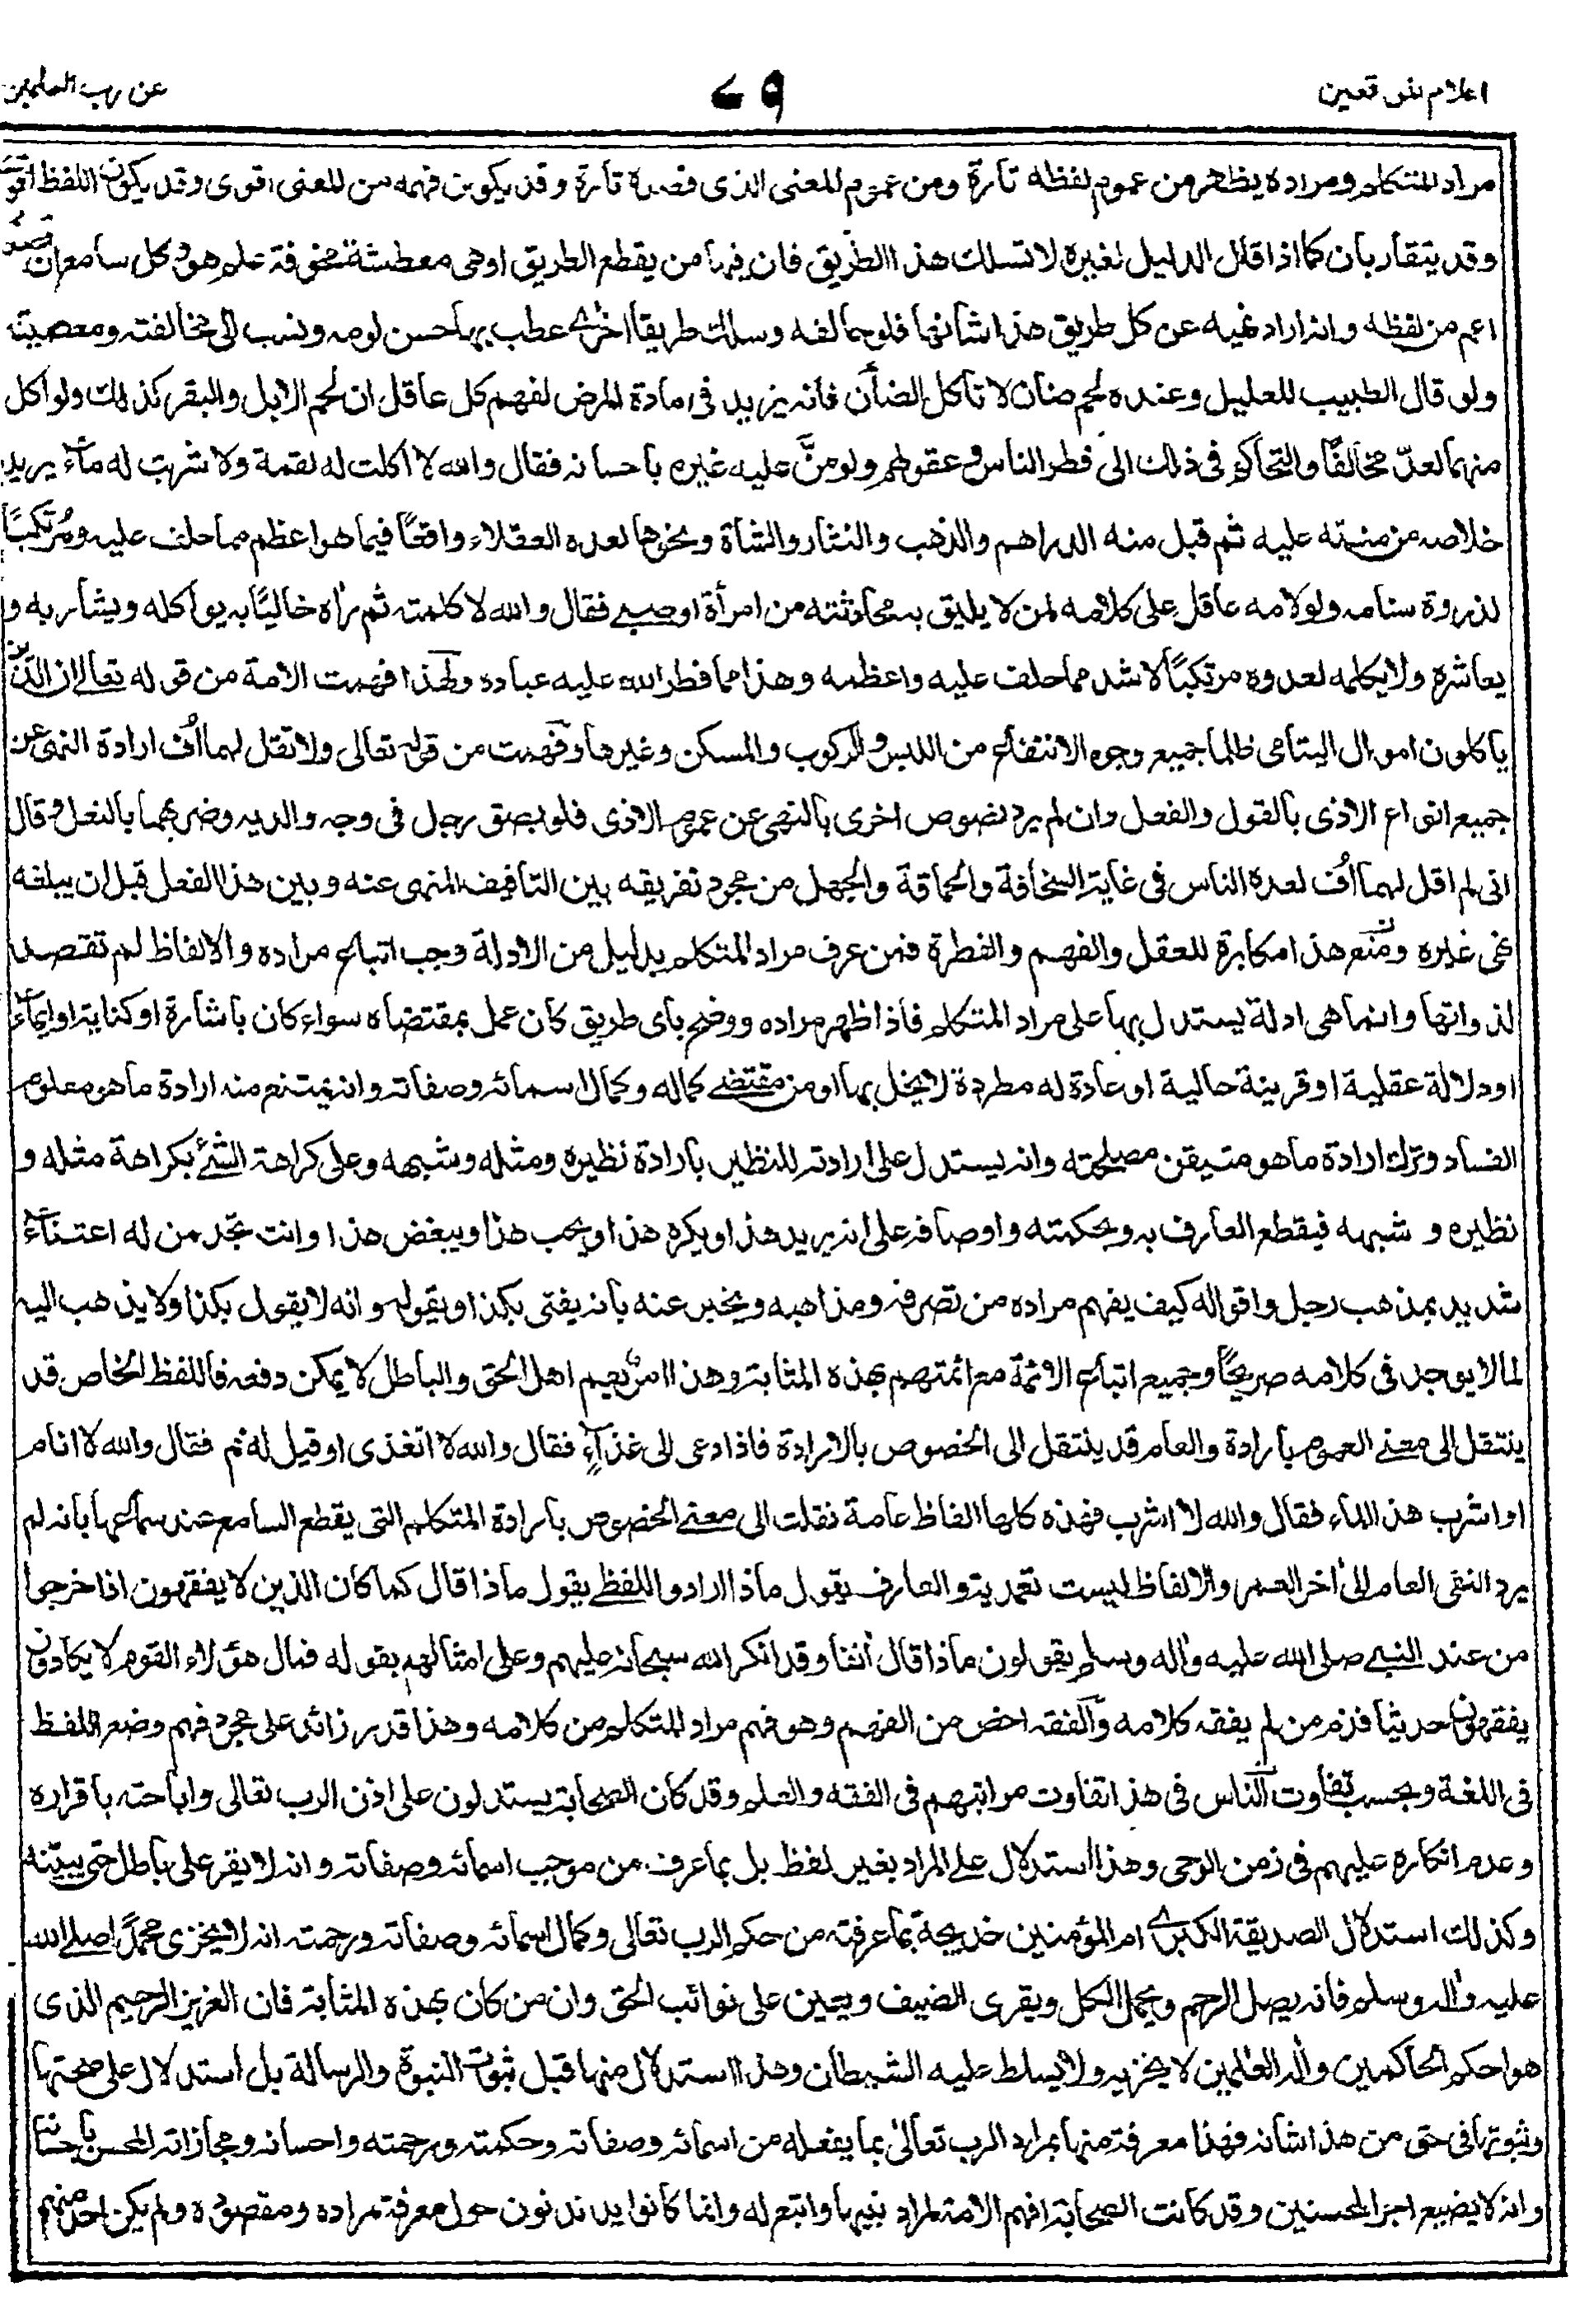 اعلام الموقعين
٧٩
عن رب العلمين
مراد المتكلم ومراده يظهر من عموم لفظه تارة ومن عموم المعنى الذى قصده تارة وقد يكون فهمه من المعنى اقوى وقد يكون اللفظ اقوى
وقد يتقاربان كما اذا قال الدليل لغيره لا تسلك هذا الطريق فان فيها من يقطع الطريق اوهى معطشة مخوفة علم هو وكل سامع ان قصده
اعم من لفظه وانه اراد نهيه عن كل طريق هذا شانها فلو خالفه وسلك طريقا اخرى عطب بها حسن لومه ونسب الى مخالفته ومعصيته
ولو قال الطبيب للعليل وعنده لحم ضان لا تاكل الضأن فانه يزيد فى مادة المرض لفهم كل عاقل ان لحم الابل والبقر كذلك ولو اكل
منهما لعدّ مخالفًا والتحاكم فى ذلك الى فطر الناس وعقولهم ولو منّ عليه غيره باحسانه فقال والله لا اكلت له لقمة ولا شربت له ماءً يريد
خلاصه من منته عليه ثم قبل منه الدراهم والذهب والثياب والشاة ونحوها لعده العقلاء واقعًا فيما هو اعظم مما حلف عليه ومُرتكبًا
لذروة سنامه ولو لامه عاقل على كلامه لمن لا يليق به محادثته من امرأة او صبى فقال والله لا كلمته ثم رأه خاليًا به يواكله ويشاربه و
يعاشره ولا يكلمه لعدوه مرتكبًا لاشد مما حلف عليه واعظمه وهذا مما فطر الله عليه عباده ولهذا فهمت الامة من قوله تعالى ان الذين
ياكلون اموال اليتامى ظلما جميع وجوه الانتفاع من اللبس والركوب والمسكن وغيرها وفهمت من قوله تعالى ولا تقل لهما اُف ارادة النهى عن
جميع انواع الاذى بالقول والفعل وان لم يرد نصوص اخرى بالنهى عن عموم الاذى فلو بصق رجل فى وجه والديه وضربهما بالنعل وقال
انى لم اقل لهما اُف لعده الناس فى غاية السخافة والحماقة والجهل من مجرد تفريقه بين التافيف المنهى عنه وبين هذا الفعل قبل ان يبلغه
نهى غيره ومنع هذا مكابرة للعقل والفهم والفطرة فمن عرف مراد المتكلم بدليل من الادلة وجب اتباع مراده والالفاظ لم تقصد
لذواتها وانما هى ادلة يستدل بها على مراد المتكلم فاذا ظهر مراده ووضح باى طريق كان عمل بمقتضاه سواء كان باشارة او كناية او ايماءً
او دلالة عقلية او قرينة حالية او عادة له مطردة لا يخل بها او من مقتضى كماله وكمال اسمائه وصفاته وانه يمتنع منه ارادة ما هو معلوم
الفساد وترك ارادة ما هو متيقن مصلحته وانه يستدل على ارادته للنظير بارادة نظيره ومثله وشبهه وعلى كراهة الشئ بكراهة مثله و
نظيره و شبهه فيقطع العارف به وبحكمته واوصافه على انه يريد هذا ويكره هذا ويحب هذا ويبغض هذا وانت تجد من له اعتناءً
شديد بمذهب رجل واقواله كيف يفهم مراده من تصرفه ومذاهبه ويخبر عنه بانه يفتى بكذا ويقوله وانه لا يقول بكذا ولا يذهب اليه
لما لا يوجد فى كلامه صريحًا وجميع اتباع الائمة مع ائمتهم بهذه المثابة وهذا امر يعم اهل الحق والباطل لا يمكن دفعه فاللفظ الخاص قد
ينتقل الى معنى العموم بارادة والعام قد ينتقل الى الخصوص بالارادة فاذا دعى الى غذاءٍ فقال والله لا اتغذى او قيل له نم فقال والله لا انام
او اشرب هذا الماء فقال والله لا اشرب فهذه كلها الفاظ عامة نقلت الى معنى الخصوص بارادة المتكلم التى يقطع السامع عند سماعها بانه لم
يرد النفى العام الى اٰخر العمر والالفاظ ليست تعبدية والعارف يقول ماذا اراد واللفظى يقول ماذا قال كما كان الذين لا يفقهون اذا خرجوا
من عند النبى صلى الله عليه واٰله وسلم يقولون ماذا قال اٰنفا وقد انكر الله سبحانه عليهم وعلى امثالهم بقوله فمال هؤلاء القوم لا يكادون
يفقهون حديثا فذم من لم يفقه كلامه والفقه اخص من الفهم وهو فهم مراد المتكلم من كلامه وهذا قدر زائد على مجرد فهم وضع اللفظ
فى اللغة وبحسب تفاوت الناس فى هذا تفاوت مراتبهم فى الفقه والعلم وقد كان الصحابة يستدلون على اذن الرب تعالى واباحته باقراره
وعدم انكاره عليهم فى زمن الوحى وهذا استدلال على المراد بغير لفظ بل بما عرف من موجب اسمائه وصفاته وانه لا يقر على باطل حتى يبينه
وكذلك استدلال الصديقة الكبرى ام المؤمنين خديجة بما عرفته من حكم الرب تعالى وكمال اسمائه وصفاته ورحمته انه لا يخزى محمدًا صلى الله
عليه واٰله وسلم فانه يصل الرحم ويحمل الكل ويقرى الضيف ويعين على نوائب الحق وان من كان بهذه المثابة فان العزيز الرحيم الذى
هو احكم الحاكمين واله العٰلمين لا يخزيه ولا يسلط عليه الشيطان وهذا استدلال منها قبل ثبوت النبوة والرسالة بل استدلال على صحتها
وثبوتها فى حق من هذا شانه فهذا معرفة منها بمراد الرب تعالى بما يفعله من اسمائه وصفاته وحكمته ورحمته واحسانه ومجازاته المحسن باحسانه
وانه لا يضيع اجر المحسنين وقد كانت الصحابة افهم الامة لمراد نبيها واتبع له وانما كانوا يدندنون حول معرفة مراده ومقصوده ولم يكن احد منهم